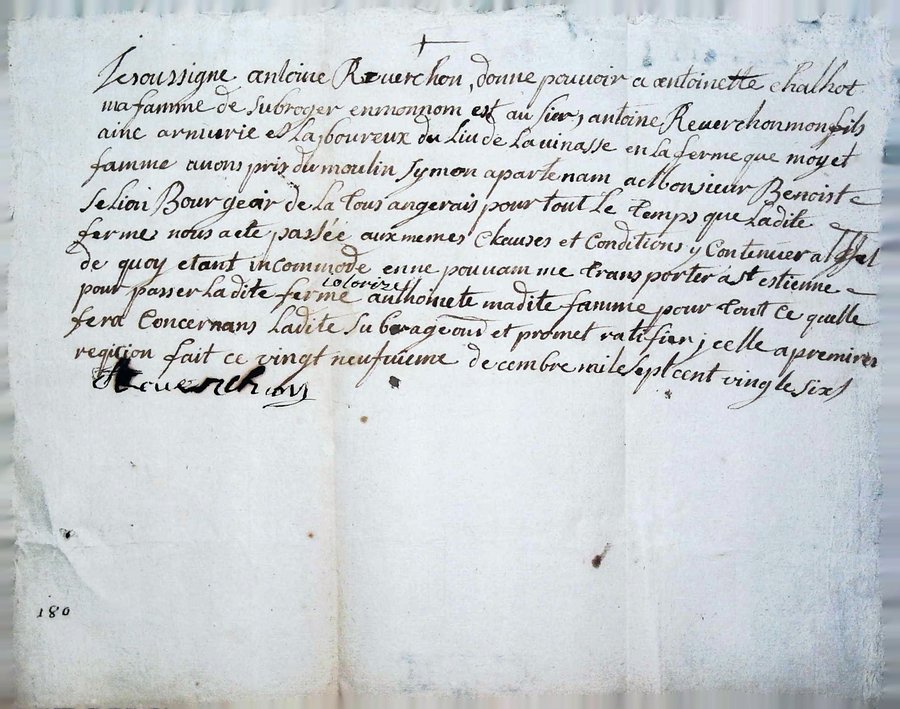 +
Je soussigne antoine Reverchon, donne pouvoir a antoinette chalhot
ma famme de subroger en mon nom est au sieur antoine Reverchon mon fils
ainé armurie et laboureux du Liu de Lavinasse en la ferme que moy et
famme avons pris du moulin symon apartenam a Monsieur Benoist
Bourgeoir de la pour tout Le temps que Ladite
fermes nous a ete passée aux memes Clauses et Conditions y Contenuer
de quoy etant incommode en ne pouvam me transporter a st estienne
pour passer Ladite ferme authoinete madite famme pour tout Ce quelle
fera Concernans Ladite et promet ratifier jcelle a premirer
reqition fait ce vingt neufuieme decembre mile sept cent vingt et sixt
Reverchon
180